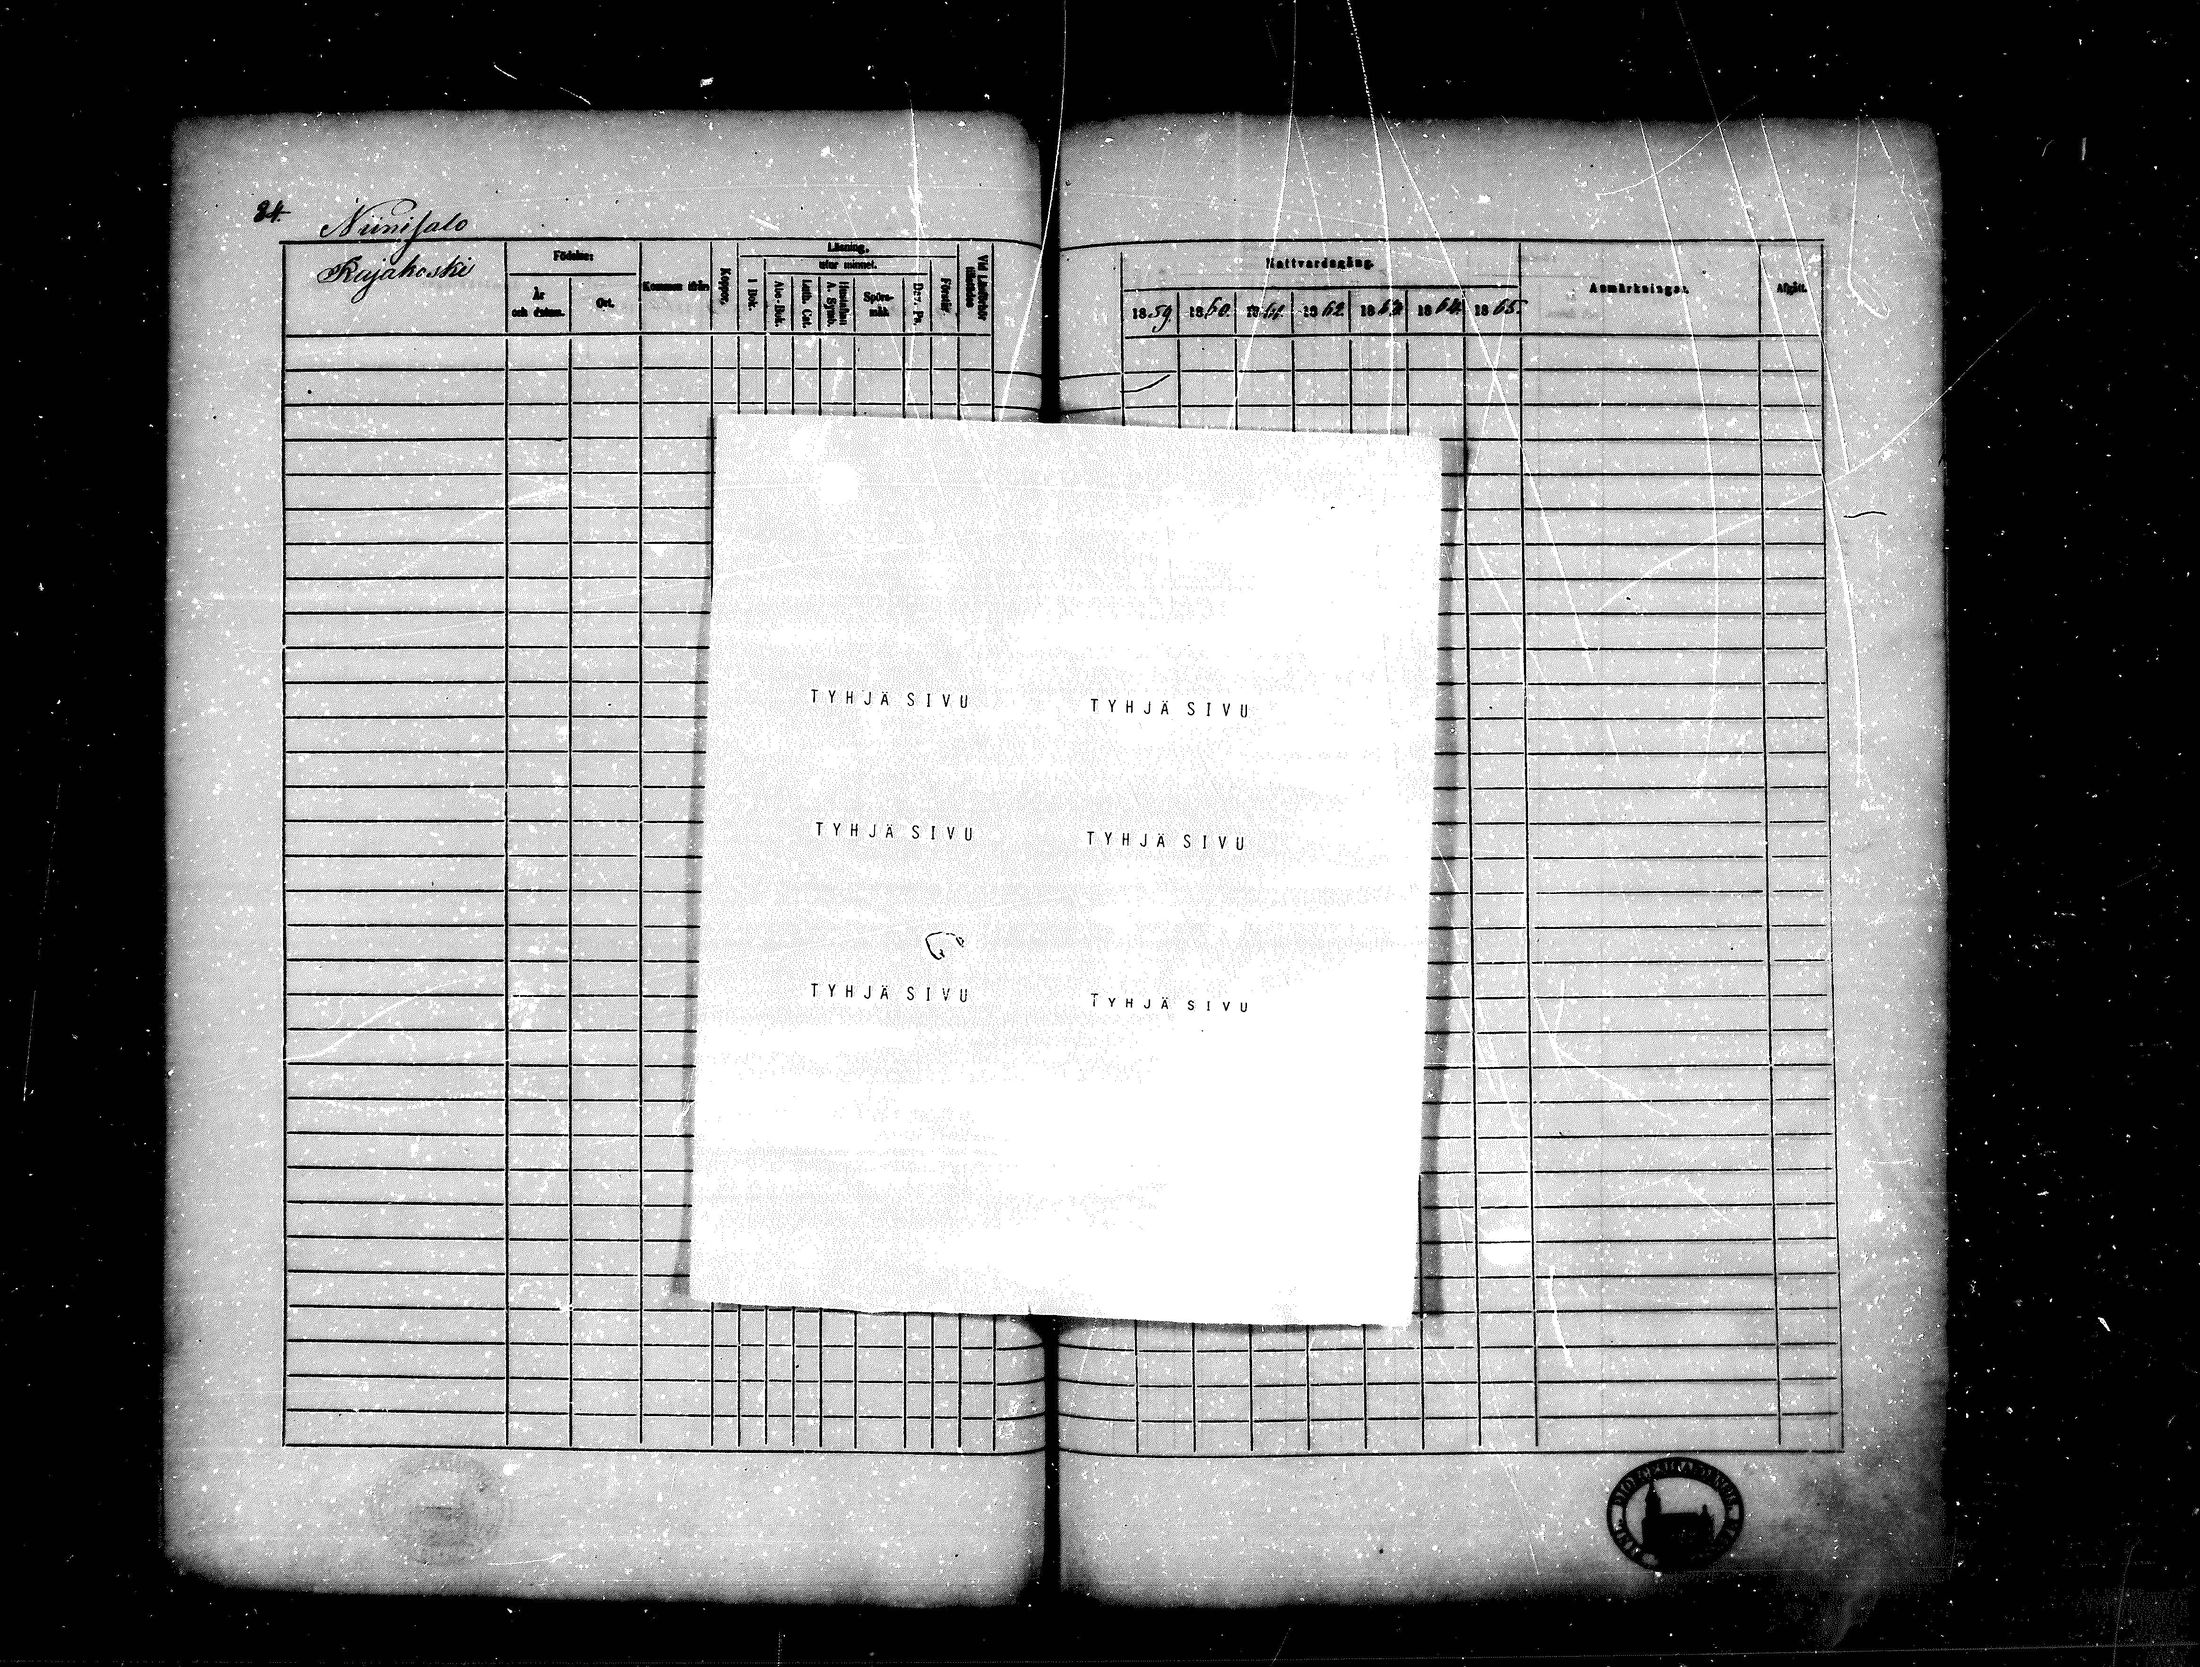 84.
Niinisalo
Rajakoski
Födelse:
År
och datum.
Ort.
Kommen ifrån
Koppor.
Läsning.
utur minnet.
I Bok.
Abc-Bok.
Luth. Cat.
Hustaflan
A. Symb.
Spörs-
mål.
Dav. Ps.
Förstår.
Vid Läseförhör
tillstädes
Nattvardsgång.
1859.
1860.
1861.
1862.
1863.
1864.
1865.
Anmärkningar.
Afgått.
TYHJÄ SIVU
TYHJÄ SIVU
TYHJÄ SIVU
TYHJÄ SIVU
TYHJÄ SIVU
TYHJÄ SIVU